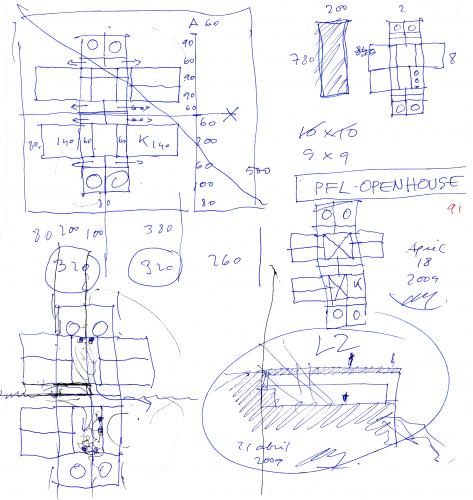 A 60
90
60
90
90
60
60
200
60
100
80
500
X
20
140
60
60
K 140
80
200
2
780
8
10 x 10
9 x 9
PFL-OPENHOUSE
91
April
18
2009
K
80 200 100 380
320 320 260
L2
21 abril
2009